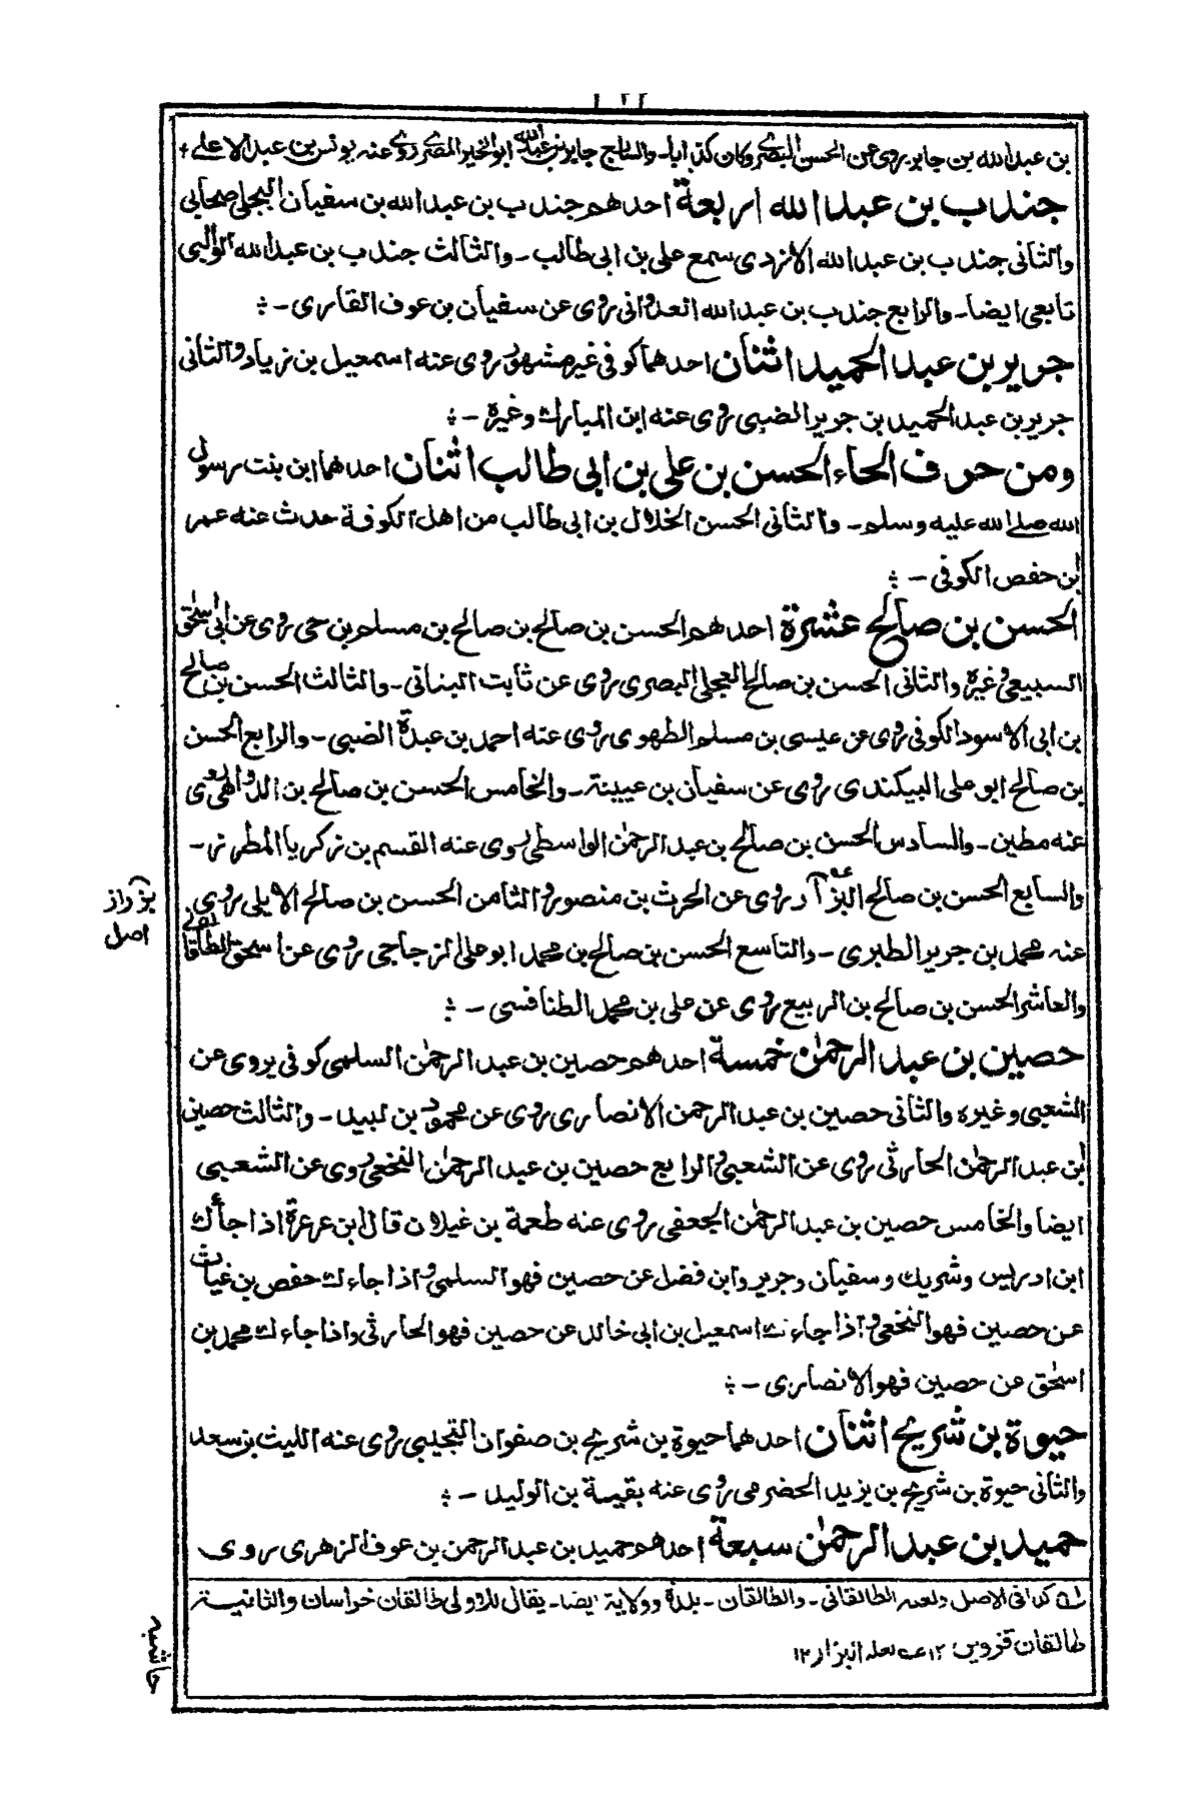 بن عبدالله بن جابر يروى عن الحسن البصرى وكان كذابا ـ والرابع جابر بن عبدالله ابو الخير المصرى روى عنه يونس بن عبد الاعلى
جندب بن عبد الله اربعة احدهم جندب بن عبد الله بن سفيان البجلى صحابى
والثانى جندب بن عبد الله الازدى سمع على بن ابى طالب ـ والثالث جندب بن عبد الله الوالبى
تابعى ايضا ـ والرابع جندب بن عبد الله العدوانى روى عن سفيان بن عوف القارى ـ
جرير بن عبد الحميد اثنان احدهما كوفى غير مشهور روى عنه اسمعيل بن زياد والثانى
جرير بن عبد الحميد بن جرير الضبى روى عنه ابن المبارك وغيره ـ
ومن حرف الحاء الحسن بن على بن ابى طالب اثنان احدهما ابن بنت رسول
الله صلى الله عليه وسلم ـ والثانى الحسن الخلال بن ابى طالب من اهل الكوفة حدث عنه عمر
ابن حفص الكوفى ـ
الحسن بن صالح عشرة احدهم الحسن بن صالح بن صالح بن مسلم بن حى روى عن ابى اسحق
السبيعى وغيره والثانى الحسن بن صالح العجلى البصرى روى عن ثابت البنانى ـ والثالث الحسن بن صالح
بن ابى الاسود الكوفى روى عن عيسى بن مسلم الطهوى روى عنه احمد بن عبدة الضبى ـ والرابع الحسن
بن صالح ابو على البيكندى روى عن سفيان بن عيينة ـ والخامس الحسن بن صالح بن روى
عنه مطين ـ والسادس الحسن بن صالح بن عبد الرحمٰن الواسطى روى عنه القسم بن زكريا المطرز ـ
والسابع الحسن بن صالح البزار روى عن الحرث بن منصور والثامن الحسن بن صالح الايلى روى
عنه محمد بن جرير الطبرى ـ والتاسع الحسن بن صالح بن محمد ابو على الزجاجى روى عن اسحق الطالقانى
والعاشر الحسن بن صالح بن الربيع روى عن على بن محمد الطنافسى ـ
حصين بن عبد الرحمٰن خمسة احدهم حصين بن عبد الرحمٰن السلمى كوفى يروى عن
الشعبى وغيره والثانى حصين بن عبد الرحمن الانصارى روى عن محمود بن لبيد ـ والثالث حصين
ابن عبد الرحمٰن الحارثى روى عن الشعبى والرابع حصين بن عبد الرحمٰن النخعى روى عن الشعبى
ايضا والخامس حصين بن عبد الرحمٰن الجعفى روى عنه طعمة بن غيلان قال ابن عرعرة اذا جاءك
ابن ادريس وشريك وسفيان وجرير وابن فضل عن حصين فهو السلمى واذا جاءك حفص بن غياث
عن حصين فهو النخعى واذا جاءك اسمعيل بن ابى خالد عن حصين فهو الحارثى واذا جاءك محمد بن
اسحٰق عن حصين فهو الانصارى ـ
حيوة بن شريح اثنان احدهما حيوة بن شريح بن صفوان التجيبى روى عنه الليث بن سعد
والثانى حيوة بن شريح بن يزيد الحضرمى روى عنه بقية بن الوليد ـ
حميد بن عبد الرحمٰن سبعة احدهم حميد بن عبد الرحمن بن عوف الزهرى روى
كذا فى الاصل ولعله الطالقانى ـ والطالقان ـ بلدة وولاية ايضا ـ يقال للاولى طالقان خراسان والثانية
طالقان قزوين ١٢ لعله البزار ١٢
بزراز
اصل
حاشيه